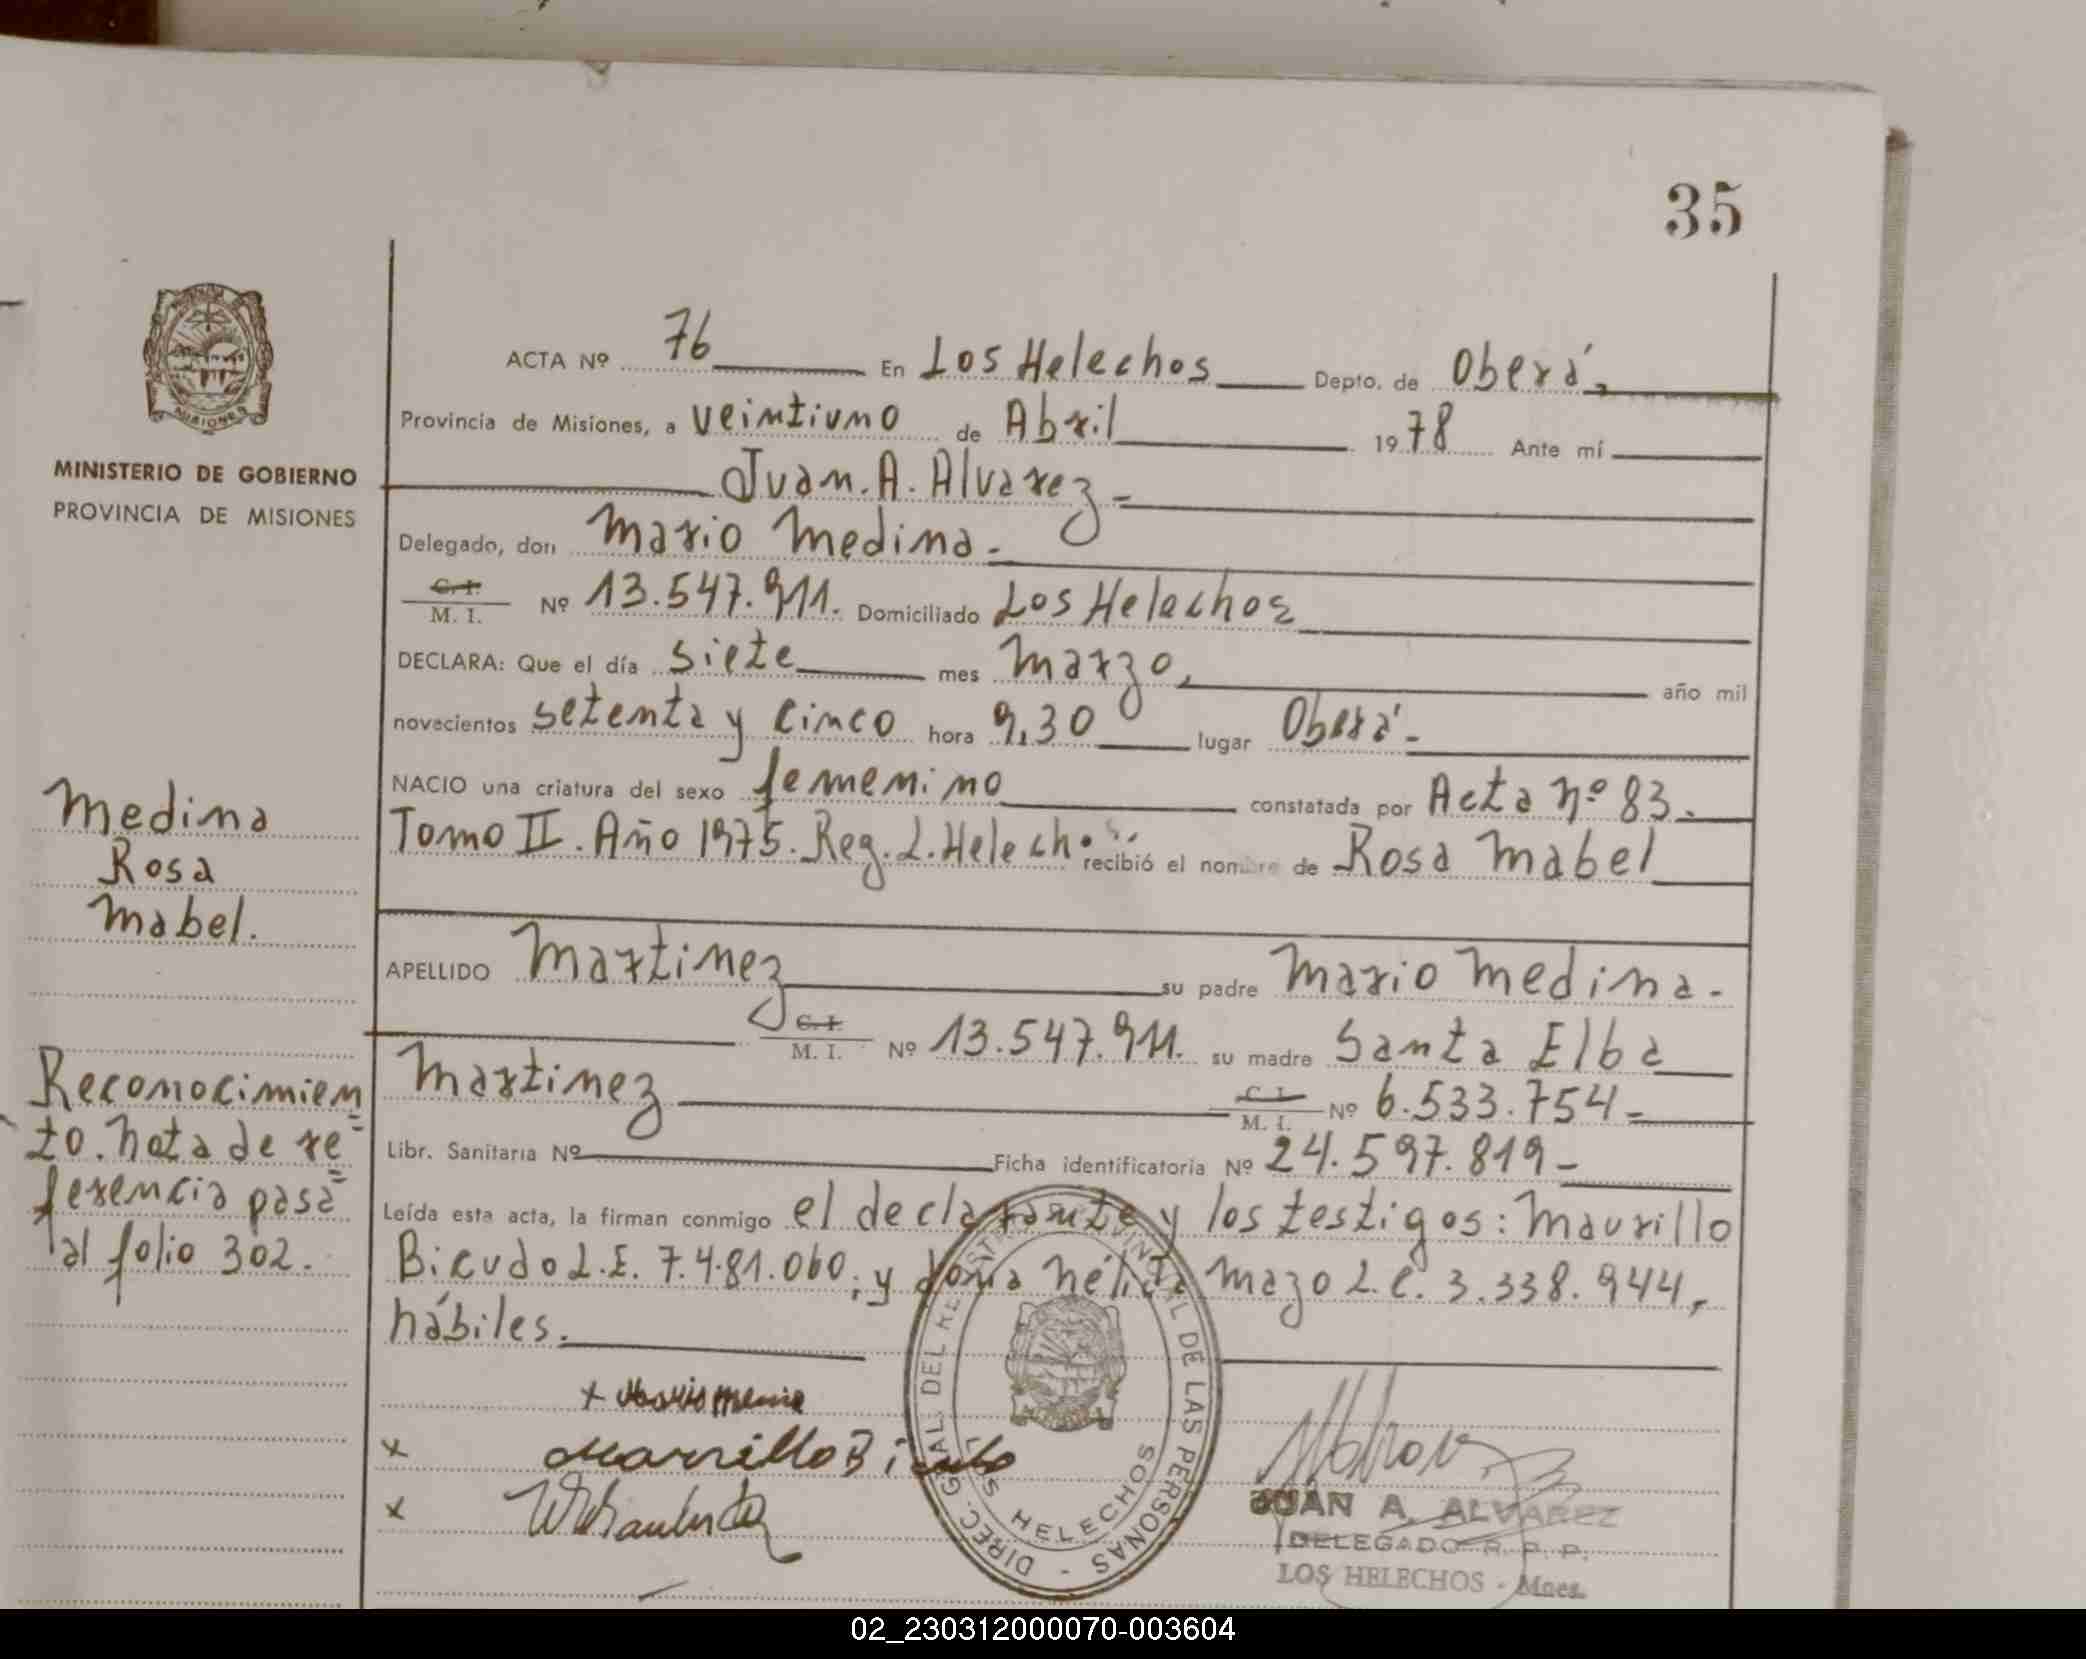 35
ACTA Nº 76 En Los Helechos Depto. de Oberá,
Provincia de Misiones, a veintiuno de Abril 1978 Ante mí
Juan. A. Alvarez-
Delegado, don Mario Medina-
C. I.
M. I. Nº 13.547.911. Domiciliado Los Helechos
DECLARA: Que el día siete mes Marzo, año mil
novecientos setenta y cinco hora 9,30 lugar Oberá-
NACIO una criatura del sexo femenino constatada por Acta nº 83.-
Tomo II. Año 1975. Reg. L. Helechos. recibió el nombre de Rosa Mabel
APELLIDO Martinez su padre Mario Medina-
C. I.
M. I. Nº 13.547.911. su madre Santa Elba
Martinez C. I.
M. I. Nº 6.533.754-
Libr. Sanitaria Nº Ficha identificatoria Nº 24.597.819-
Leída esta acta, la firman conmigo el declarante y los testigos: Maurillo
Bicudo L.E. 7.481.060, y doña Nélida Mazo L.C. 3.338.944,
hábiles.
MISIONES
MINISTERIO DE GOBIERNO
PROVINCIA DE MISIONES
Medina
Rosa
Mabel.
Reconocimien
to. Nota de re=
ferencia pasa=
al folio 302.
Maurillo Bicudo
DIREC. GRAL. DEL REGISTRO PROVINCIAL DE LAS PERSONAS -
LOS HELECHOS
JUAN A. ALVAREZ
DELEGADO R. P. P.
LOS HELECHOS - Mnes.
02_230312000070-003604